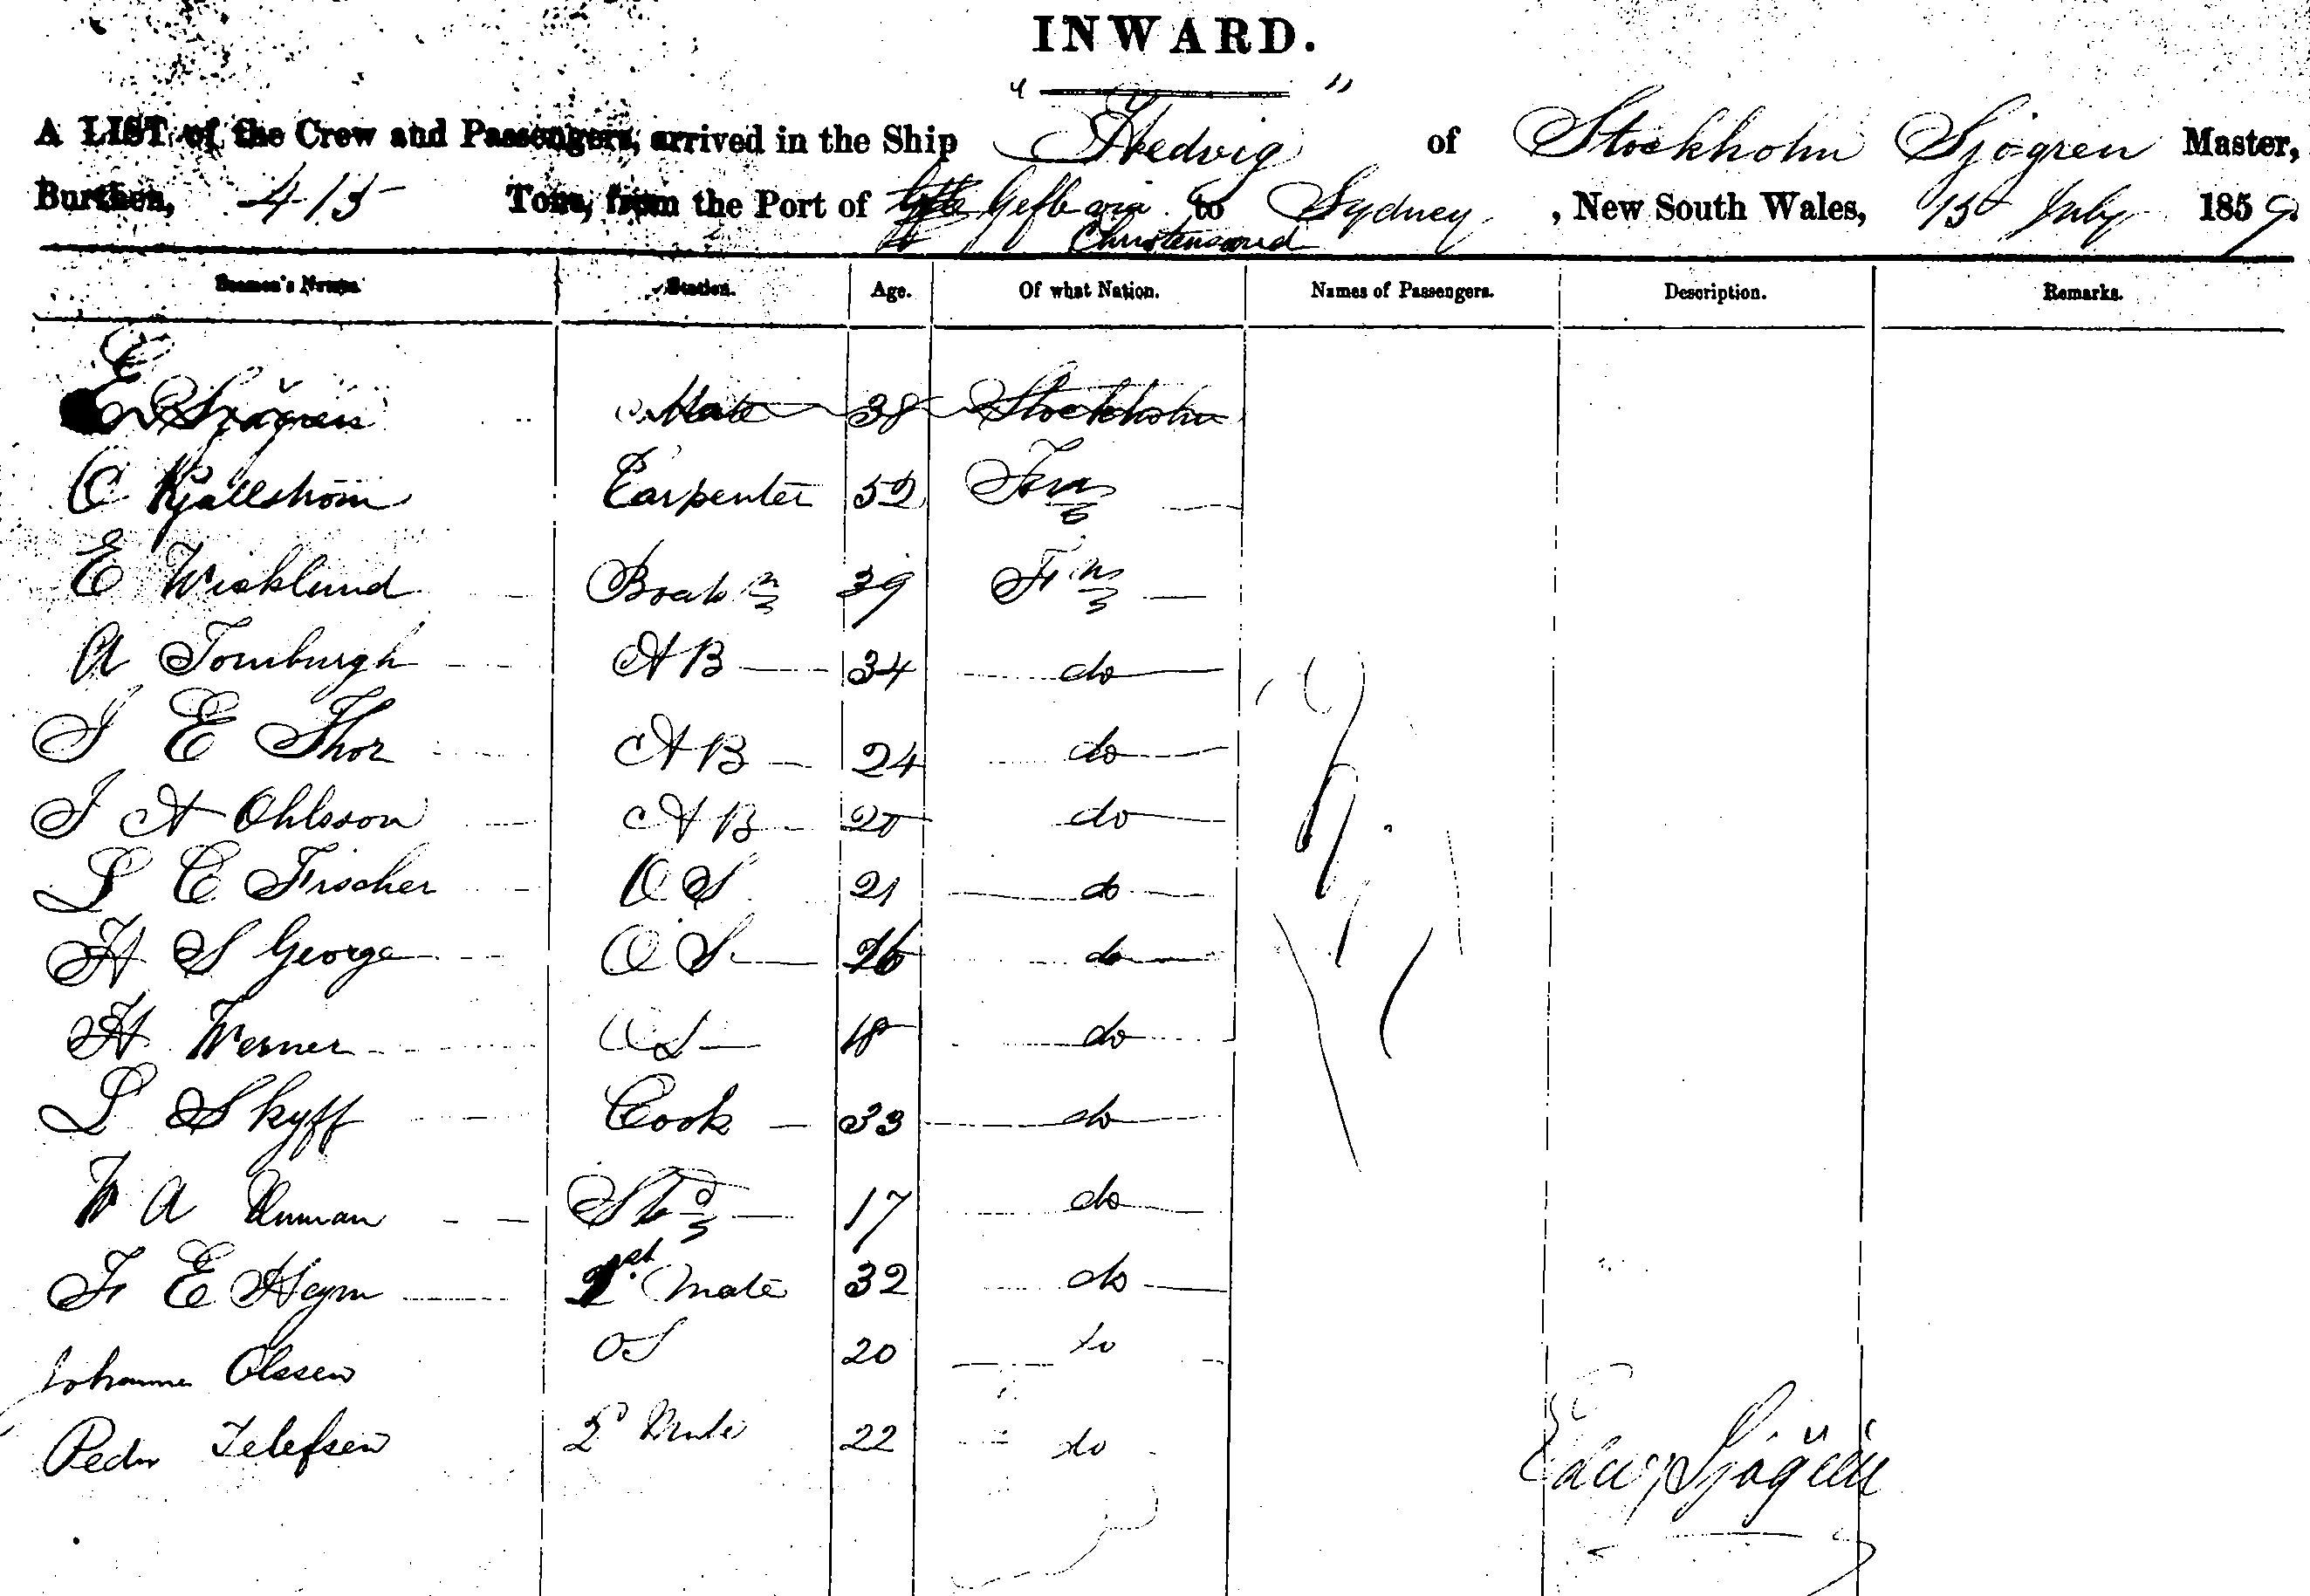 INWARD.
A LIST of the Crew and Passengers, arrived in the Ship "Hedvig" of Stockholm Sjögren Master,
Burthen, 415 Tons, from the Port of Gefle via to Sydney, New South Wales, 15 July 1859.
Seamen's Names. Station. Age. Of what Nation. Names of Passengers. Description. Remarks.
E Sjögren Mate 38 Stockholm
C Kjallstrom Carpenter 52
E Wicklund Boats n 39 Fins
A Tornburgh AB 34 do
J E Thor AB 24 do
J A Ohlsson AB 20 do
L C Fischer OS 21 do
H S George OS 26 do
H Werner OS 18 do
L Skyff Cook 33 do
W A Unman Std 17 do
F E Heym 1st Mate 32 do
Johannes Olssen OS 20 do
Peder Telefsen 2d Mate 22 do
Sjögren